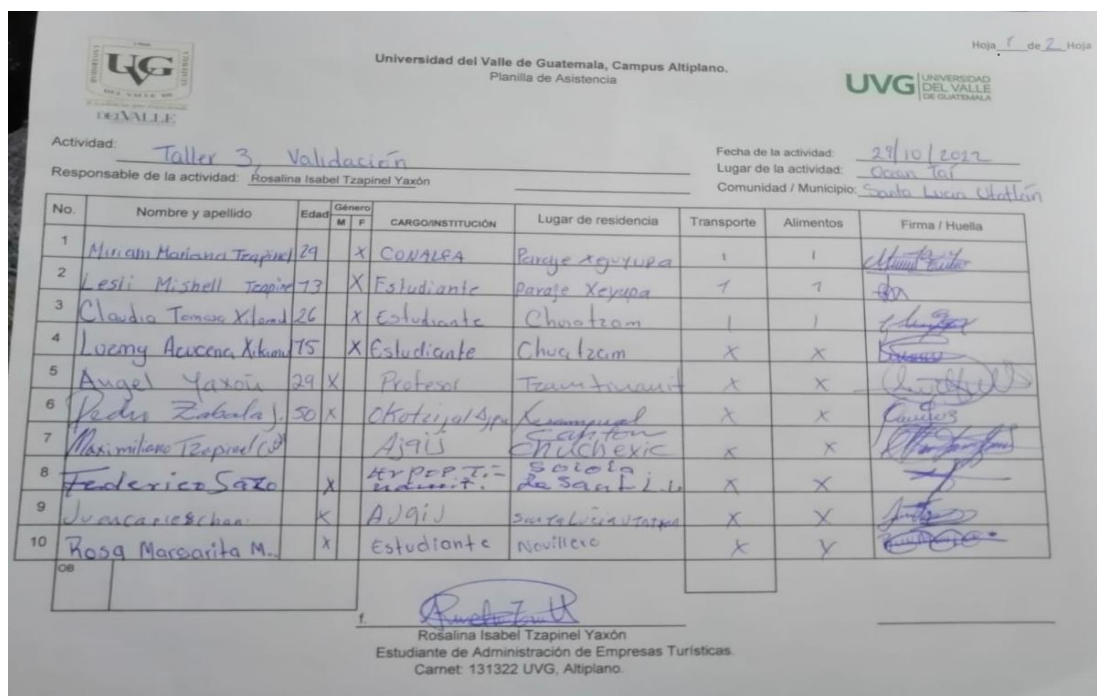 Hoja 1 de 2 Hoja
Universidad del Valle de Guatemala, Campus Altiplano.
Planilla de Asistencia
UVG
DEL VALLE
UVG UNIVERSIDAD DEL VALLE DE GUATEMALA
Actividad: Taller 3, Validación
Fecha de la actividad: 29/10/2022
Responsable de la actividad: Rosalina Isabel Tzapinel Yaxón
Lugar de la actividad: Ocan Taí
Comunidad / Municipio: Santa Lucia Utatlán
No. Nombre y apellido Edad Género M F CARGO/INSTITUCIÓN Lugar de residencia Transporte Alimentos Firma / Huella
1 Miriam Mariana Tzapinel 29 X CONALFA Paraje 1 1
2 Lesli Mishell 13 X Estudiante Paraje Xeyupa 1 1
3 Claudia Tomasa 26 X Estudiante Chuatzam 1 1
4 Acucena 15 X Estudiante Chuatzam X X
5 Angel Yaxón 29 X Profesor X X
6 Pedro Zabala J. 50 X X X
7 Maximiliano Tzapinel X Ajqij Canton Chuchexic X X
8 Federico Sazo X Sololá X X
9 X Ajqij Santa Lucia Utatlan X X
10 Rosa Margarita M. X Estudiante Novillero X X
OB
f.
Rosalina Isabel Tzapinel Yaxón
Estudiante de Administración de Empresas Turísticas.
Carnet: 131322 UVG, Altiplano.